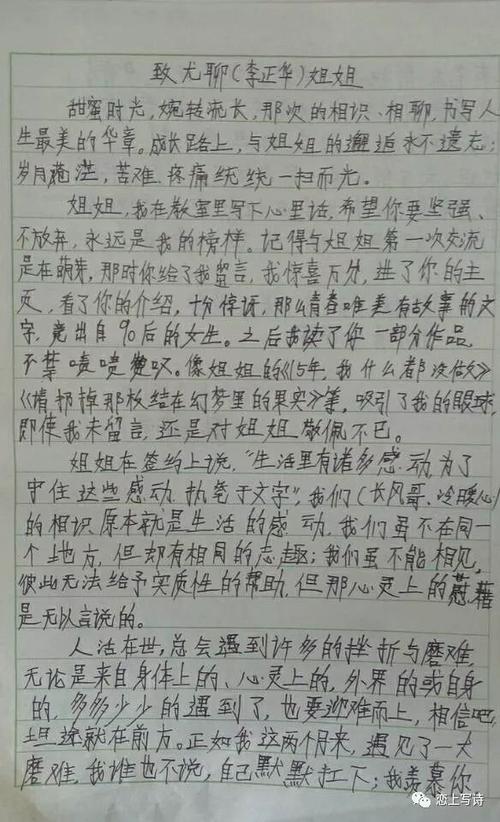 致尤聊(李正华)姐姐
甜蜜时光,婉转流长,那次的相识、相聊,书写人
生最美的华章。成长路上,与姐姐的邂逅永不遗忘;
岁月苍茫,苦难、疼痛统统一扫而光。
姐姐,我在教室里写下心里话,希望你要坚强、
不放弃,永远是我的榜样。记得与姐姐第一次交流
是在萌芽,那时你给了我留言,我惊喜万分,进了你的主
页,看了你的介绍,十分惊讶,那么青春唯美有故事的文
字,竟出自90后的女生。之后我读了你一部分作品,
不禁啧啧赞叹。像姐姐的《15年,我什么都没做》
《请扔掉那枚结在幻梦里的果实》等,吸引了我的眼球,
即使我未留言,还是对姐姐敬佩不已。
姐姐在签约上说,“生活里有诸多感动,为了
守住这些感动,执笔于文字”,我们(长风哥、冷暖心)
的相识原本就是生活的感动,我们虽不在同一
个地方,但却有相同的志趣;我们虽不能相见,
彼此无法给予实质性的帮助,但那心灵上的慰藉
是无以言说的。
人活在世,总会遇到许多的挫折与磨难,
无论是来自身体上的、心灵上的,外界的或自身
的,多多少少的遇到了,也要迎难而上,相信吧,
坦途就在前方。正如我这两个月来,遇见了一大
磨难,我谁也不说,自己默默扛下;我羡慕你
恋上写诗